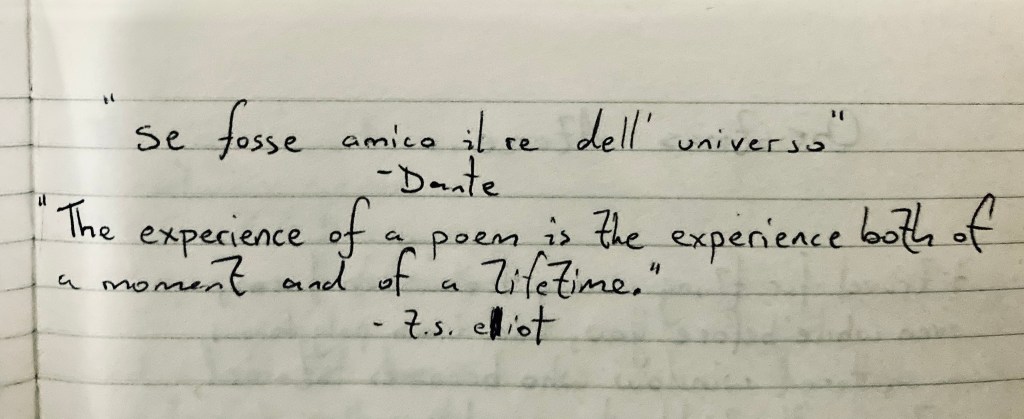 "Se fosse amico il re dell' universo"
-Dante
"The experience of a poem is the experience both of
a moment and of a lifetime."
- T.S. elliot